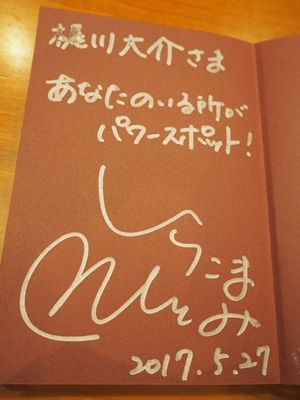 梶川大介さま
あなたのいる所が
パワースポット!
しらこま
ひとみ
2017.5.27